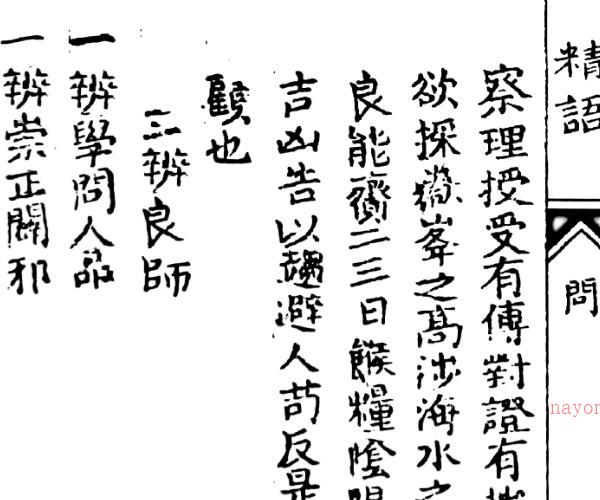 精語
問
察理授受有傳對證有
欲探嶽峯之高涉海水之
良能齎二三日餱糧陰陽
吉凶告以趨避人苟反是
顧也
三辨良師
一辨學問人品
一辨崇正闢邪
nayon